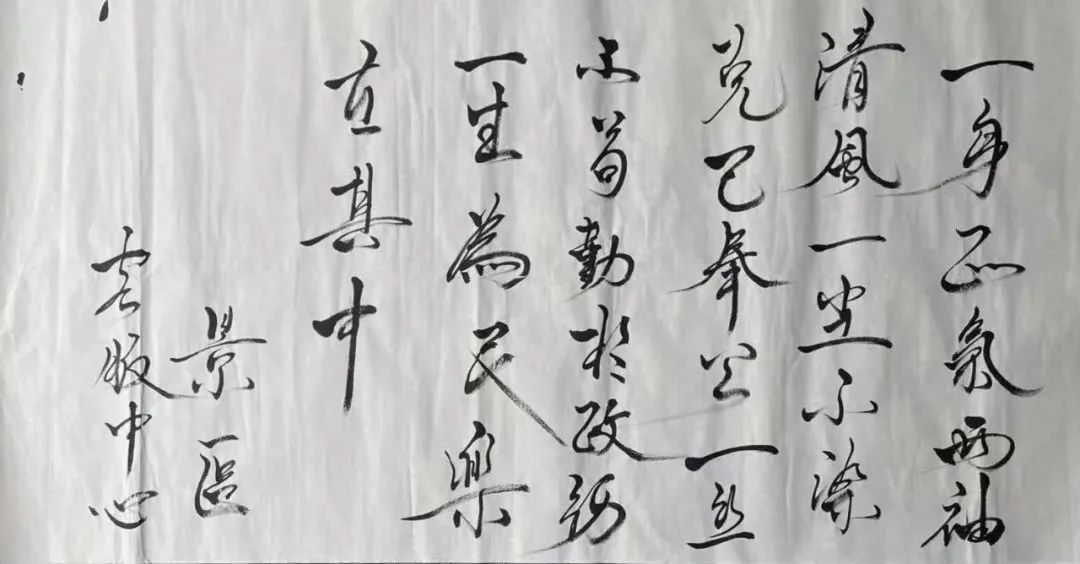 一身正氣兩袖
清風一尘不染
克己奉公一丝
不苟勤於政務
一生為民樂
在其中
景區
客服中心